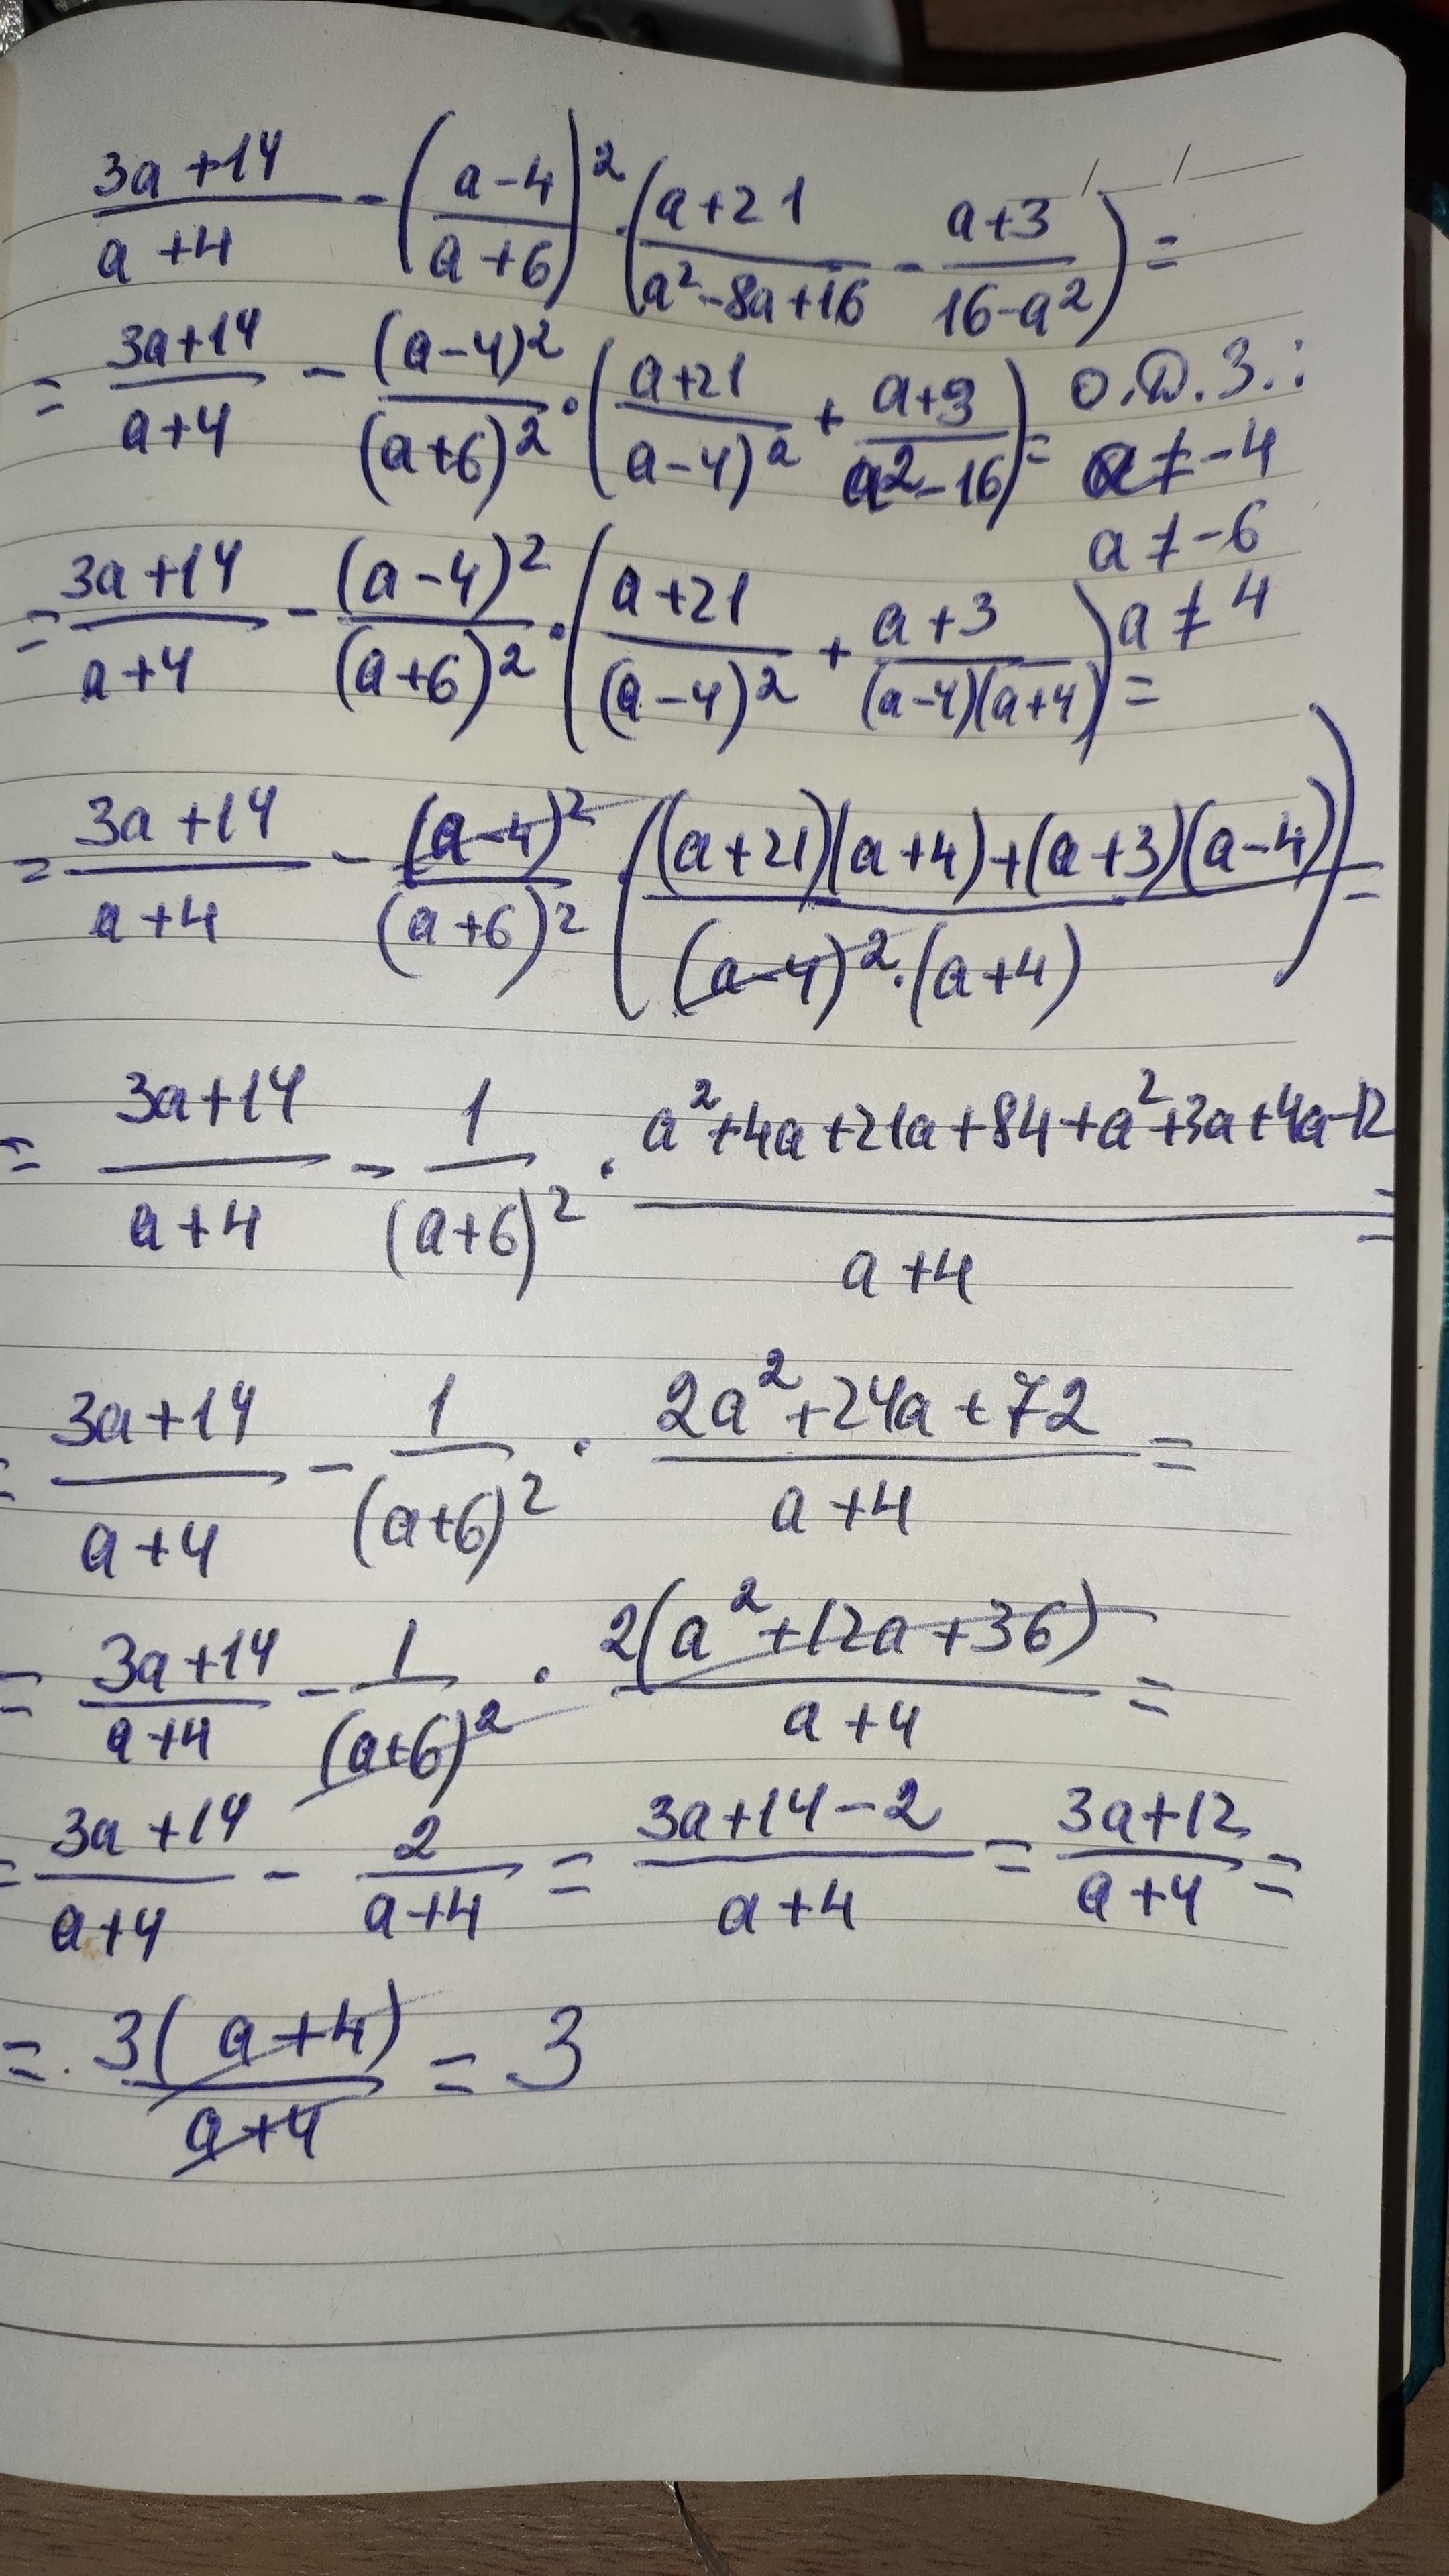 (3a+14)/(a+4) - ((a-4)/(a+6))² · ((a+21)/(a²-8a+16) - (a+3)/(16-a²)) =
= (3a+14)/(a+4) - (a-4)²/(a+6)² · ((a+21)/(a-4)² + (a+3)/(a²-16)) =
О.Д.З.:
a≠-4
a≠-6
a≠4
= (3a+14)/(a+4) - (a-4)²/(a+6)² · ((a+21)/(a-4)² + (a+3)/((a-4)(a+4))) =
= (3a+14)/(a+4) - (a-4)²/(a+6)² (((a+21)(a+4)+(a+3)(a-4))/((a-4)²·(a+4))) =
= (3a+14)/(a+4) - 1/(a+6)² · (a²+4a+21a+84+a²+3a+4a-12)/(a+4) =
= (3a+14)/(a+4) - 1/(a+6)² · (2a²+24a+72)/(a+4) =
= (3a+14)/(a+4) - 1/(a+6)² · 2(a²+12a+36)/(a+4) =
= (3a+14)/(a+4) - 2/(a+4) = (3a+14-2)/(a+4) = (3a+12)/(a+4) =
= 3(a+4)/(a+4) = 3